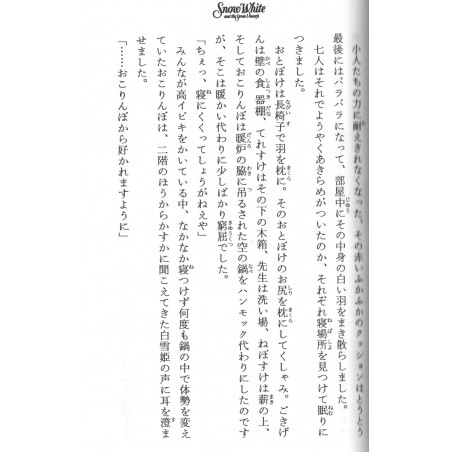 Snow White
and the Seven Dwarfs
小人たちの力に耐えきれなくなった、その赤いふかふかのクッションはとうとう
最後にはバラバラになって、部屋中にその中身の白い羽をまき散らしました。
七人はそれでようやくあきらめがついたのか、それぞれ寝場所を見つけて眠りに
つきました。
おとぼけは長椅子で羽を枕に。そのおとぼけのお尻を枕にしてくしゃみ。ごきげ
んは壁の食器棚、てれすけはその下の木箱、先生は洗い場、ねぼすけは薪の上、
そしておこりんぼは暖炉の脇に吊るされた空の鍋をハンモック代わりにしたのです
が、そこは暖かい代わりに少しばかり窮屈でした。
「ちぇっ、寝にくくってしょうがねえや」
みんなが高イビキをかいている中、なかなか寝つけず何度も鍋の中で体勢を変え
ていたおこりんぼは、二階のほうからかすかに聞こえてきた白雪姫の声に耳を澄ま
せました。
「……おこりんぼから好かれますように」